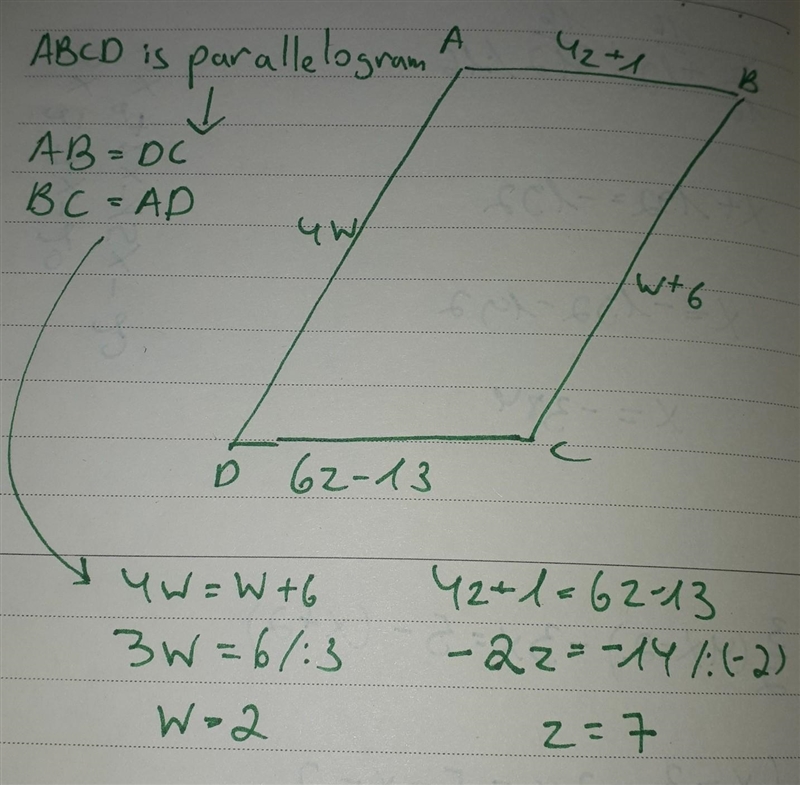 ABCD is parallelogram
AB = DC
BC = AD
A
4z+1
B
4W
W+6
D
6z-13
C
4W = W+6
3W = 6 /:3
W = 2
4z+1 = 6z-13
-2z = -14 /:(-2)
z = 7